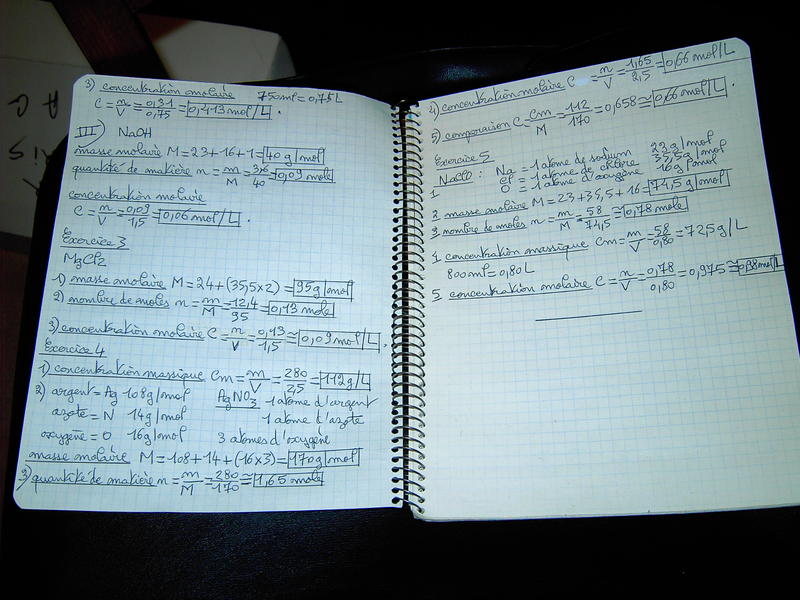 3) concentration molaire 750ml = 0,75L
C = n/V = 0,31/0,75 = 0,413 mol/L.
III) NaOH
masse molaire M = 23+16+1 = 40g/mol
quantité de matière n = m/M = 3,6/40 = 0,09 mole
concentration molaire
C = n/V = 0,09/1,5 = 0,06 mol/L.
Exercice 3
MgCl2
1) masse molaire M = 24+(35,5x2) = 95g/mol
2) nombre de moles n = m/M = 12,4/95 = 0,13 mole
3) concentration molaire C = n/V = 0,13/1,5 = 0,09 mol/L.
Exercice 4
1) concentration massique Cm = m/V = 280/2,5 = 112g/L
2) argent = Ag 108g/mol AgNO3 1 atome d'argent
azote = N 14g/mol 1 atome d'azote
oxygène = O 16g/mol 3 atomes d'oxygène
masse molaire M = 108+14+(16x3) = 170g/mol
3) quantité de matière n = m/M = 280/170 ≅ 1,65 mole
4) concentration molaire C = n/V = 1,65/2,5 = 0,66 mol/L
5) comparaison C = Cm/M = 112/170 = 0,658 ≅ 0,66 mol/L.
Exercice 5
NaClO: Na = 1 atome de sodium 23g/mol
Cl = 1 atome de chlore 35,5g/mol
1 O = 1 atome d'oxygène 16g/mol
2 masse molaire M = 23+35,5+16 = 74,5g/mol
3 nombre de moles n = m/M = 58/74,5 = 0,78 mole
1 concentration massique Cm = m/V = 58/0,80 = 72,5g/L
800ml = 0,80L
5 concentration molaire C = n/V = 0,78/0,80 = 0,975 ≅ 0,98 mol/L